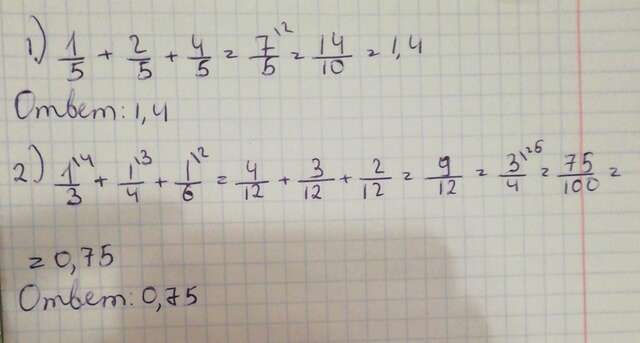 1) 1/5 + 2/5 + 4/5 = 7\2/5 = 14/10 = 1,4
Ответ: 1,4
2) 1\4/3 + 1\3/4 + 1\2/6 = 4/12 + 3/12 + 2/12 = 9/12 = 3\25/4 = 75/100 =
= 0,75
Ответ: 0,75